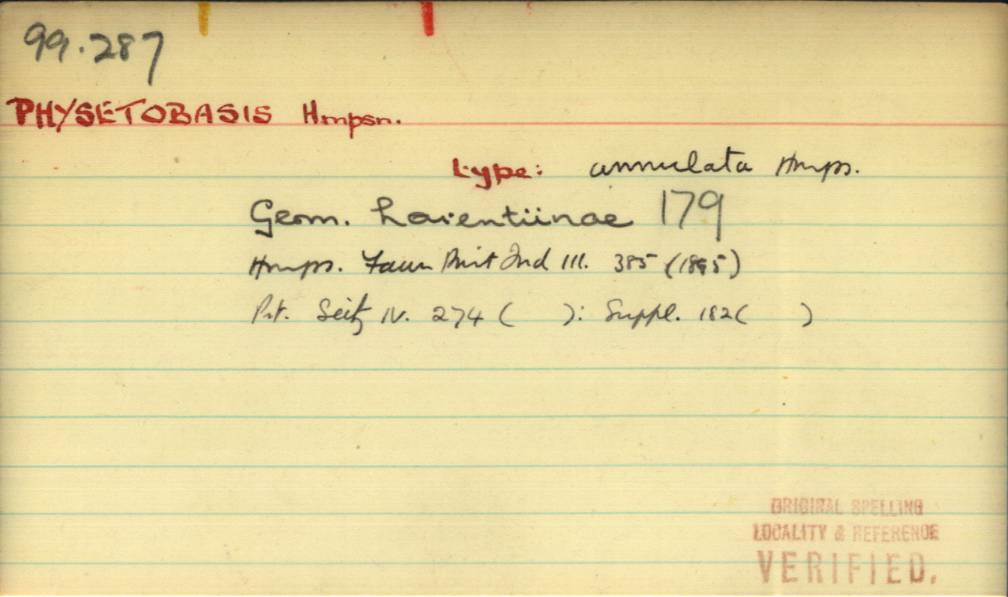 99.287
PHYSETOBASIS Hmpsn.
type: annulata Hmps.
Geom. Larentiinae 179
Hmps. Faun Brit Ind III. 385 (1895)
Prt. Seitz IV. 274 ( ): Suppl. 182( )
ORIGINAL SPELLING
LOCALITY & REFERENCE
VERIFIED.